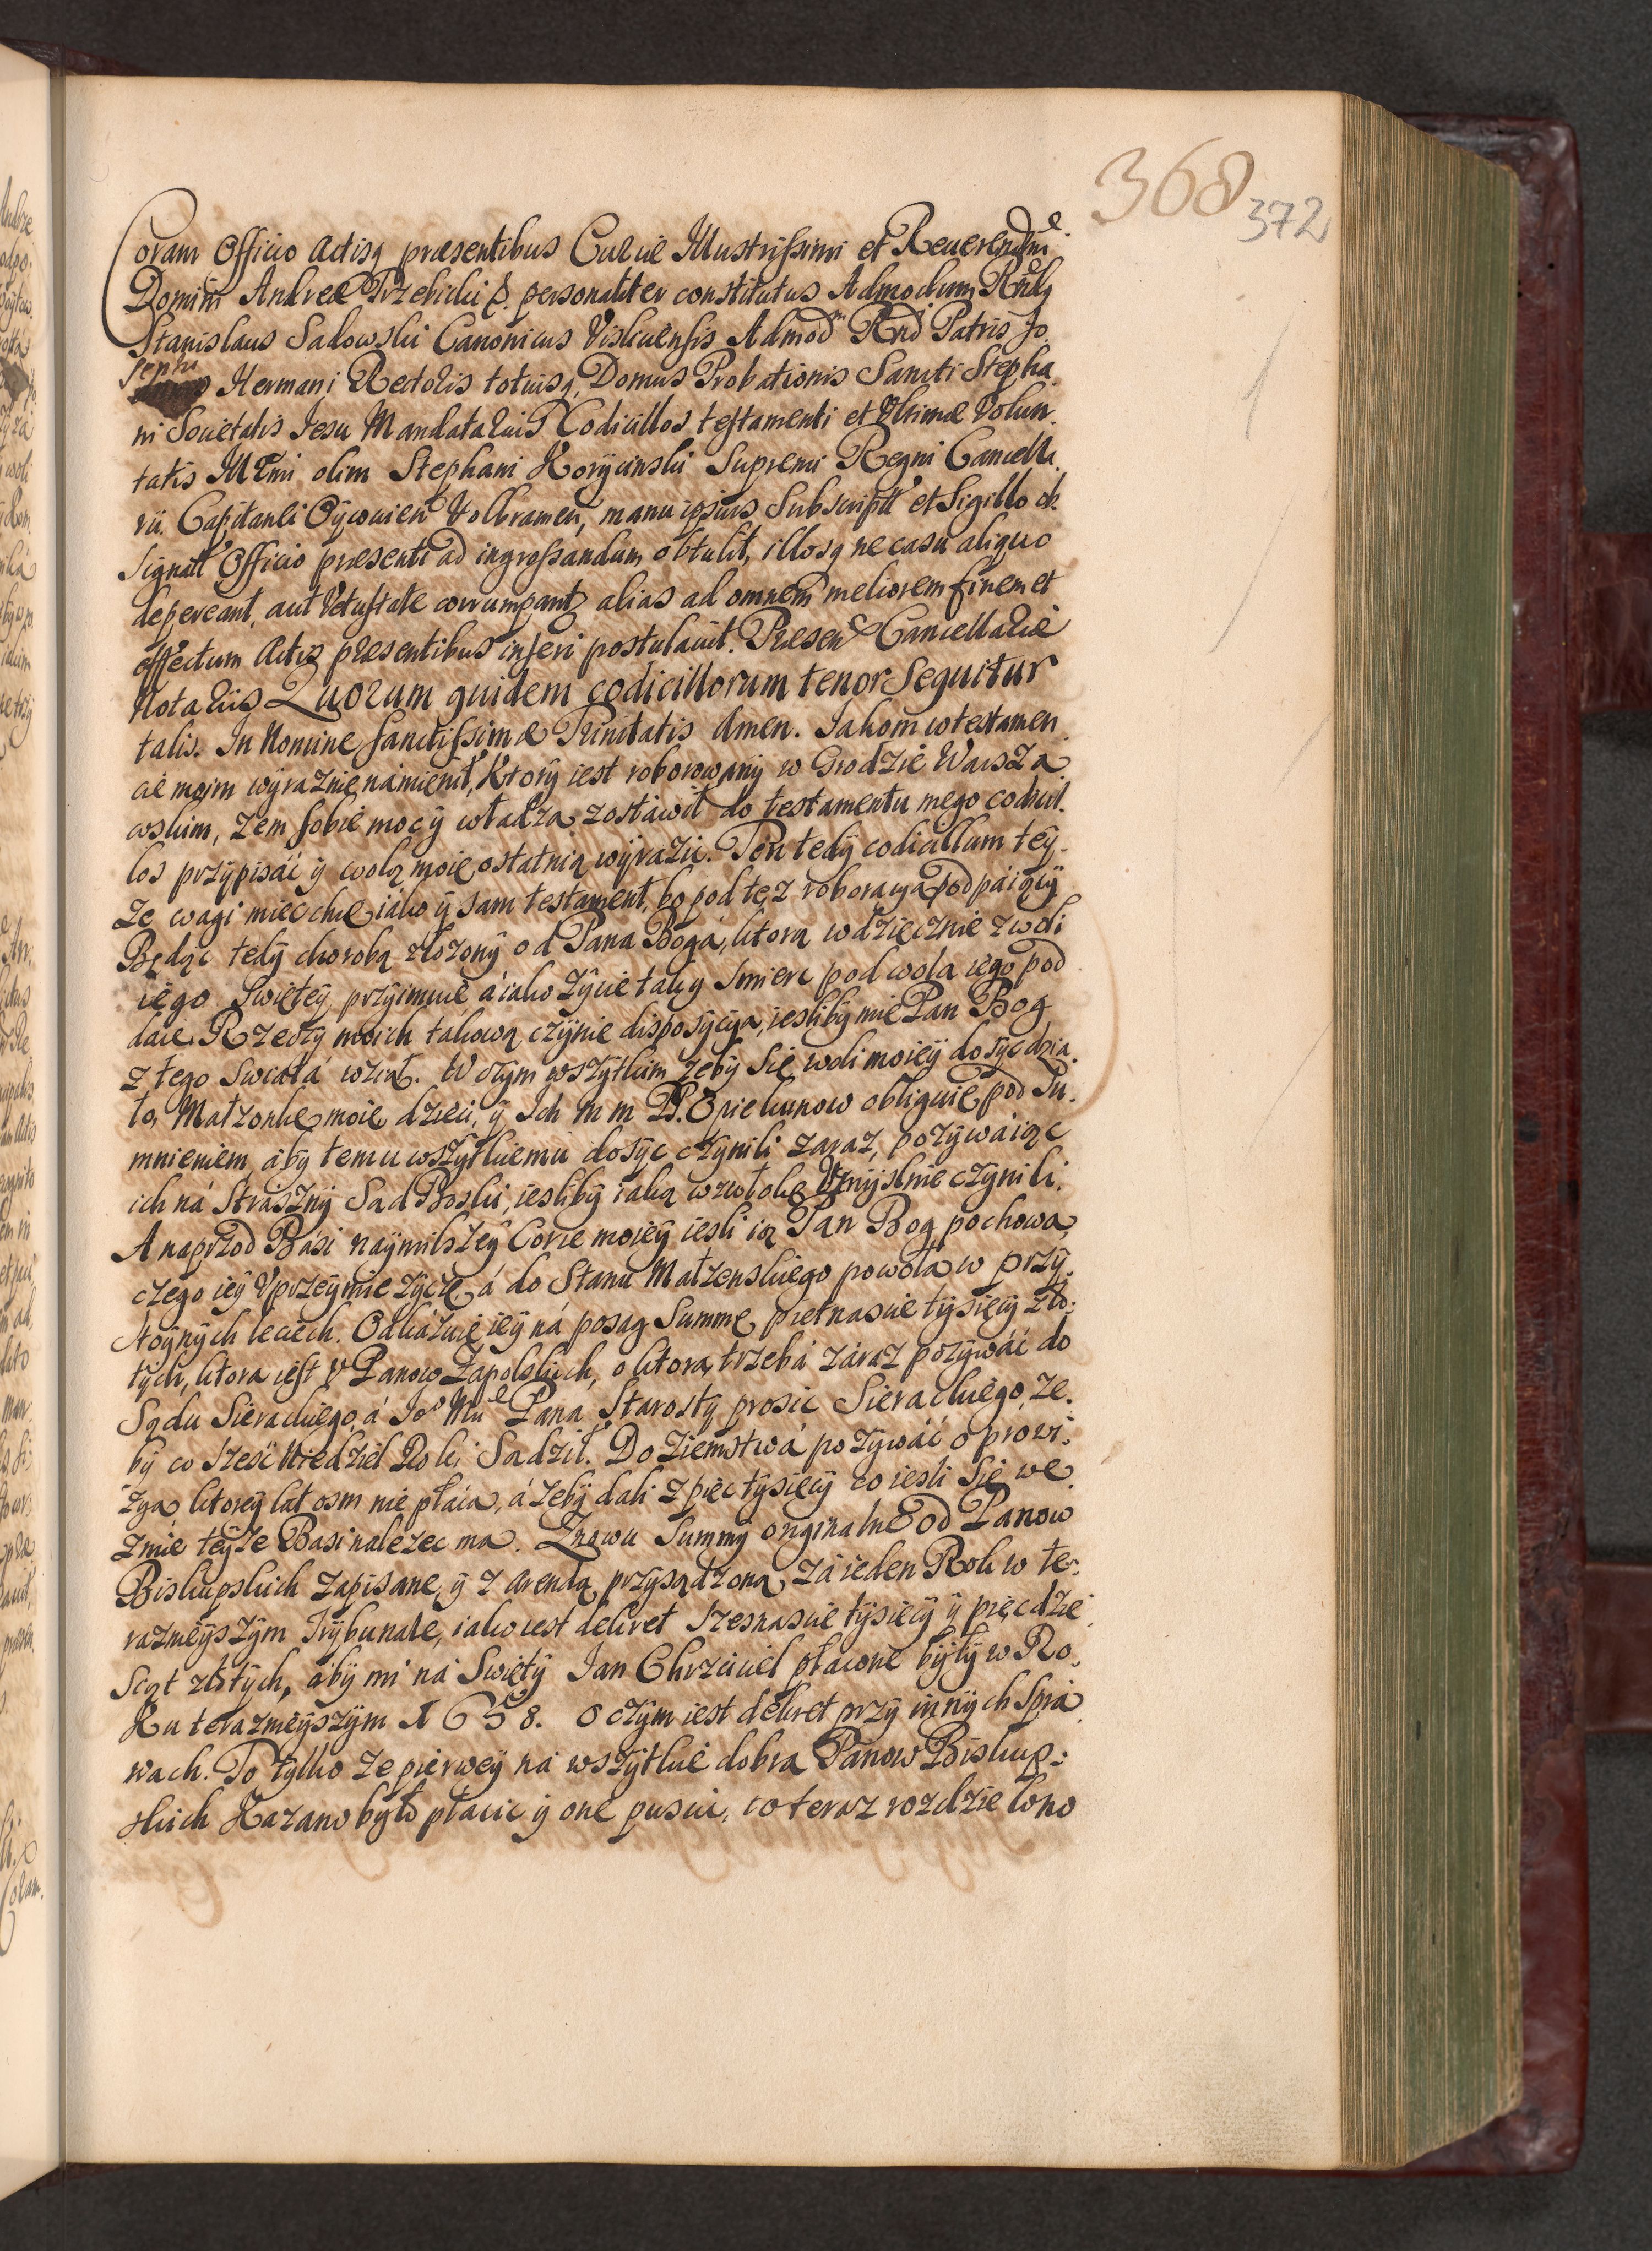 368
372
Coram Officio Actisq praesentibus Curiae Illustrissimi et Reuerendmi
Domini Andreae Trzebicki personaliter constitutus Admodum Rndq
Stanislaus Sadowski Canonicus Viskuensis Admodm Rnd Patris Jo
sephi Hermani Rectoris totiusq Domus Probationis Sancti Stepha
ni Societatis Jesu Mandatarius Codicillos testamenti et Vltimae Volun
tatis Illmi olim Stephani Korycinski Supremi Regni Cancella
rii. Capitanei Oycouien Volbramen, manu ipsius Subscript et Sigillo ob
signat Officio praesenti ad ingrossandum obtulit, illosq ne casu aliquo
depereant, aut Vetustate corrumpant alias ad omnem meliorem finem et
effectum Actis praesentibus inseri postulauit. Praesen Cancellariae
Notariis Quorum quidem codicillorum tenor Sequitur
talis. In Nomine Sanctissimae Trinitatis Amen. Jakom w testamen
cie moim wyraznie námienił, Ktory iest roborowany w Grodzie Warsza
wskim, zem sobie mocÿ władza zostáwił do testamentu mego codicil
los przypisáć ÿ wolą moię ostatnią wyrazic. Ten tedy codicillum tey
ze wagi miec chcę iáko ÿ sam testament, bo pod tęz roboracyą podpáiący
Będąc tedy chorobą złozony od Pana Bogá, ktorą wdzięcznie z woli
iego Swiętey przyimuię á iako zÿcie tak y smierc pod wolą iego pod
daię. Rzeczy moich takową czynie disposycyą, iesliby mię Pan Bog
z tego Swiatá wziął. W czym wszytkim zeby Się woli moiey dosyc dzia
ło, Małzonkę moię dzieci, ÿ Ich m m PP. Opiekunow obliguię pod Su
mnieniem áby temu wszytkiemu dosyc czynili zaraz, pozywáiąc
ich ná Straszny Sąd Boski, iesliby iaką wzwłokę Vmyslnie czynili.
A naprzod Básÿ naymilszey Corce moiey iesli ią Pan Bog pochowa
czego iey Vprzeymie zyczę á do Stanu Małzenskiego powoła w przy
stoynych leciech. Odkázuię iey ná posag Summę piętnascie tysięcy zło
tych, ktora iest V Panow Zapolskich, o ktorą trzebá záraz pozywáć do
Sądu Sierackiego, á Jeo Mci Pana Starosty prosic Sierackiego, ze
by co szesć Niedziel Roki Sądził. Do Ziemstwá pozywáć o prowi
zyą, ktorey lat osm nie płácą, á zeby dali z pięc tysięcy co iesli Się we
zmie teyze Basi nalezec ma. Znowu Summy orginalne od Panow
Biskupskich zapisane, ÿ z arendą przysądzoną, zá ieden Rok w te
raznieyszym Trybunale, iako iest dekret szesnascie tysięcy ÿ pięcdzie
siąt złotych, áby mi ná Swięty Jan Chrzciciel płacone były w Ro
Ku teraznieyszym 1658. O czym iest dekret przy innych Sprá
wach. To tylko ze pierwey ná wszytkie dobra Panow Biskup
skich Kazano było płacic ÿ one puscic, co teraz rozdzielono